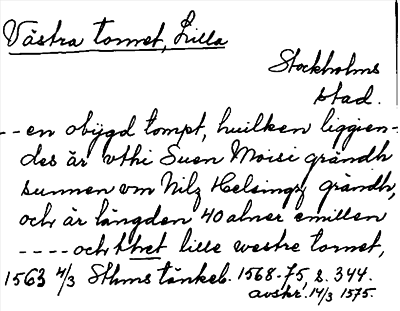 Västra tornet, Lilla
Stockholms
stad.
--en obygd tompt, huilken liggien-
des är vthi Suen Moisi grändh
sunnen om Nilz Helsingz grändh,
och är längden 40 alner emillen
----och thet lille westre tornet,
1563 4/3 Sthms tänkeb. 1568-75, s. 344.
avskr. 14/3 1575.